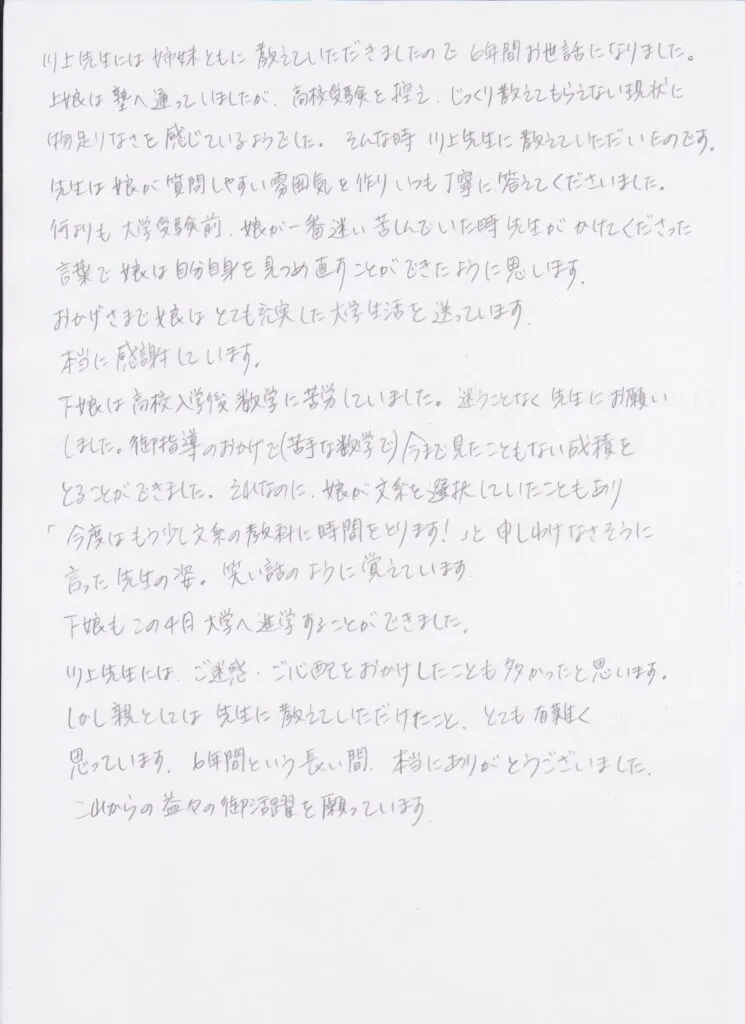 川上先生には姉妹ともに教えていただきましたので6年間お世話になりました。
上娘は塾へ通っていましたが、高校受験を控え、じっくり教えてもらえない現状に
物足りなさを感じているようでした。そんな時川上先生に教えていただいたのです。
先生は娘が質問しやすい雰囲気を作りいつも丁寧に答えてくださいました。
何よりも大学受験前、娘が一番迷い苦しんでいた時先生がかけてくださった
言葉で娘は自分自身を見つめ直すことができたように思います。
おかげさまで娘はとても充実した大学生活を送っています。
本当に感謝しています。
下娘は高校入学後数学に苦労していました。迷うことなく先生にお願い
しました。御指導のおかげで(苦手な数学で)今まで見たこともない成積を
とることができました。それなのに、娘が文系を選択していたこともあり
「今度はもう少し文系の教科に時間をとります!」と申しわけなさそうに
言った先生の姿。笑い話のように覚えています
下娘もこの4月大学へ進学することができました。
川上先生には、ご迷惑・ご心配をおかけしたことも多かったと思います。
しかし親としては先生に教えていただけたこと、とても有難く
思っています。6年間という長い間、本当にありがとうございました。
これからの益々の御活躍を願っています。